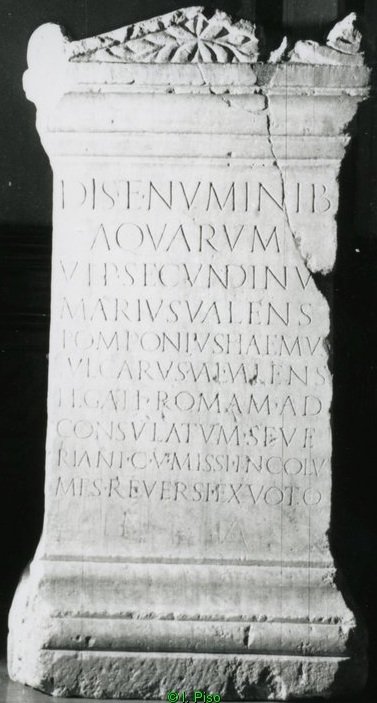 DIS·E·NVMINIB
AQVARVM
VLP·SECVNDINV
MARIVS VALENS
POMPONIVS HAEMV
IVL CARVS VAL VALENS
LEGATI·ROMAM·AD
CONSVLATVM·SEVE
RIANI·C·V·MISSI·INCOLV
MES·REVERSI·EX VOTO
E A
© I. Piso